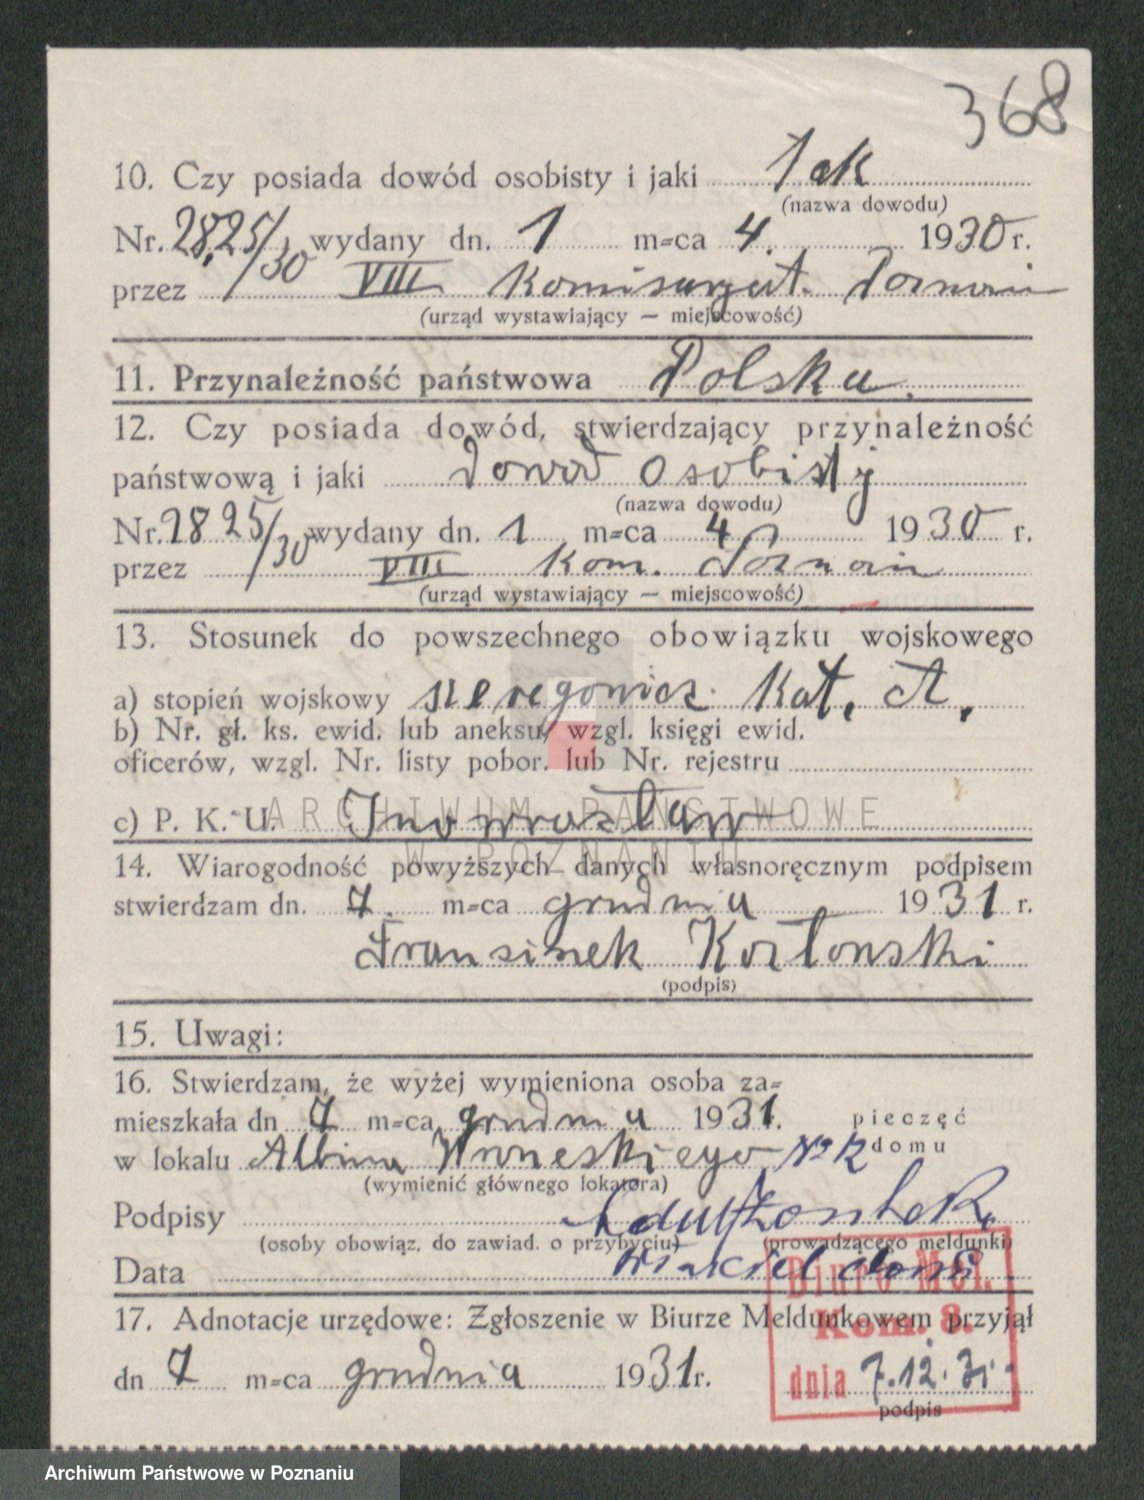 368
10. Czy posiada dowód osobisty i jaki Tak
(nazwa dowodu)
Nr. 2825/30 wydany dn. 1 m-ca 4. 1930 r.
przez VIII Komisarjat. Poznań
(urząd wystawiający — miejscowość)
11. Przynależność państwowa Polska.
12. Czy posiada dowód, stwierdzający przynależność
państwową i jaki dowod osobisty
(nazwa dowodu)
Nr. 2825/30 wydany dn. 1 m-ca 4 1930 r.
przez VIII Kom. Poznań
(urząd wystawiający — miejscowość)
13. Stosunek do powszechnego obowiązku wojskowego
a) stopień wojskowy szeregowiec. Kat. A.
b) Nr. gł. ks. ewid. lub aneksu, wzgl. księgi ewid.
oficerów, wzgl. Nr. listy pobor. lub Nr. rejestru
ARCHIWUM PAŃSTWOWE
c) P. K. U. Inowrocław
W POZNANIU
14. Wiarogodność powyższych danych własnoręcznym podpisem
stwierdzam dn. 7. m-ca grudnia 1931 r.
Fransiszek Kozłowski
(podpis)
15. Uwagi:
16. Stwierdzam, że wyżej wymieniona osoba za-
mieszkała dn 7 m-ca grudnia 1931.
pieczęć
domu
w lokalu Albina No 12
(wymienić głównego lokatora)
Podpisy
(osoby obowiąz. do zawiad. o przybyciu) (prowadzącego meldunki)
Data
17. Adnotacje urzędowe: Zgłoszenie w Biurze Meldunkowem przyjął
dn 7 m-ca grudnia 1931 r.
Biuro Mel.
Kom. 8.
dnia 7.12.31.
podpis
Archiwum Państwowe w Poznaniu